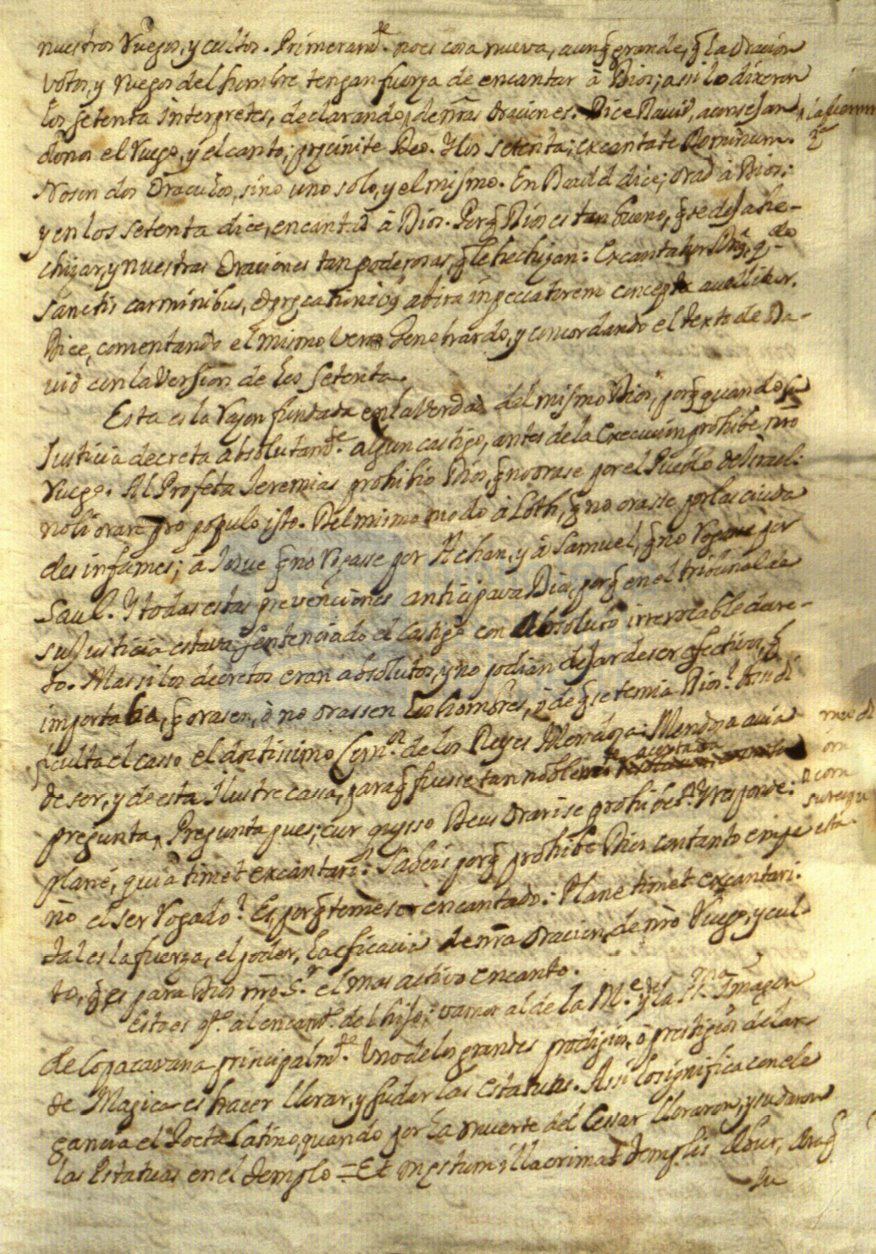 nuestros ruegos, y cultos. Primeramte. no es cosa nueva, aunq̃ grande, q̃ la oracion
votos, y ruegos del hombre tengan fuerza de encantar à Dios; assi lo dixeron
los setenta Interpretes, declarando, de nr̃as oraciones. Dice David, aconsejan
donos el ruego, y el canto; præcinite Deo. Y los setenta; excantate Dominum.
No son dos Oraculos, sino uno solo, y el mismo. En David dice; orad à Dios:
y en los setenta dice, encantad à Dios. Porq̃ Dios es tan bueno, q̃ se deja he-
chizar, y nuestras oraciones tan poderosas, q̃ le hechizan: Excantatur
sanctis carminibus, ab ira in peccatorem concepta
Dice, comentando el mismo verso Genebrardo, y concordando el texto de Da-
vid con la version de los setenta.
Esta es la razon fundada en la verdad del mismo Dios, porq̃ quando su
Justicia decreta absolutamte. algun castigo, antes de la execucion prohibe nrõ
ruego. Al Profeta Jeremias prohibio Dios, q̃ no orase por el Pueblo de Israel:
noli orare pro populo isto. Del mismo modo à Loth, q̃ no orasse por las ciuda
des infames; à Josue q̃ no rogasse por Achan, y à Samuel, q̃ no rogasse por
Saul. Y todas estas prevenciones anticipava Dios, porq̃ en el tribunal de
su Justicia estava sentenciado el castigo con absoluto irrevocable decre-
to. Mas si los decretos eran absolutos, y no podian dejar de ser efectivos, q̃
importaba, q̃ orasen, ò no orassen los hombres, ò de q̃ se temia Dios?
ficulta el casso el doctissimo de los Reyes Mendoza: Mendoza avia
de ser, y de esta Ilustre cassa, para q̃ fuesse tan noble
pregunta. Pregunta pues; cur quæso Deus orari se prohibet? Y responde:
planè, quia timet excantari: Sabeis porq̃ prohibe Dios con tanto empe
ño el ser rogado? Es porq̃ teme ser encantado: Plane timet excantari.
tal es la fuerza, el poder, la eficacia de nr̃a oracion, de nrõ ruego, y cul-
to, q̃ es para Dios nrõ Sr. el mas activo encanto.
Esto es al encanto del hijo; vamos al de la Me. y Imagen
de Copacavana principalmte. Uno de los grandes prodigios, ò prestigios del ar
te Magica es hacer llorar, y sudar las estatuas. Assi lo significa con ele
gancia el Poeta Latino, quando por la muerte del Cessar lloraron, y sudaron
las Estatuas en el Templo = Et mæstum illacrimat templis ebur, æraq̃
su